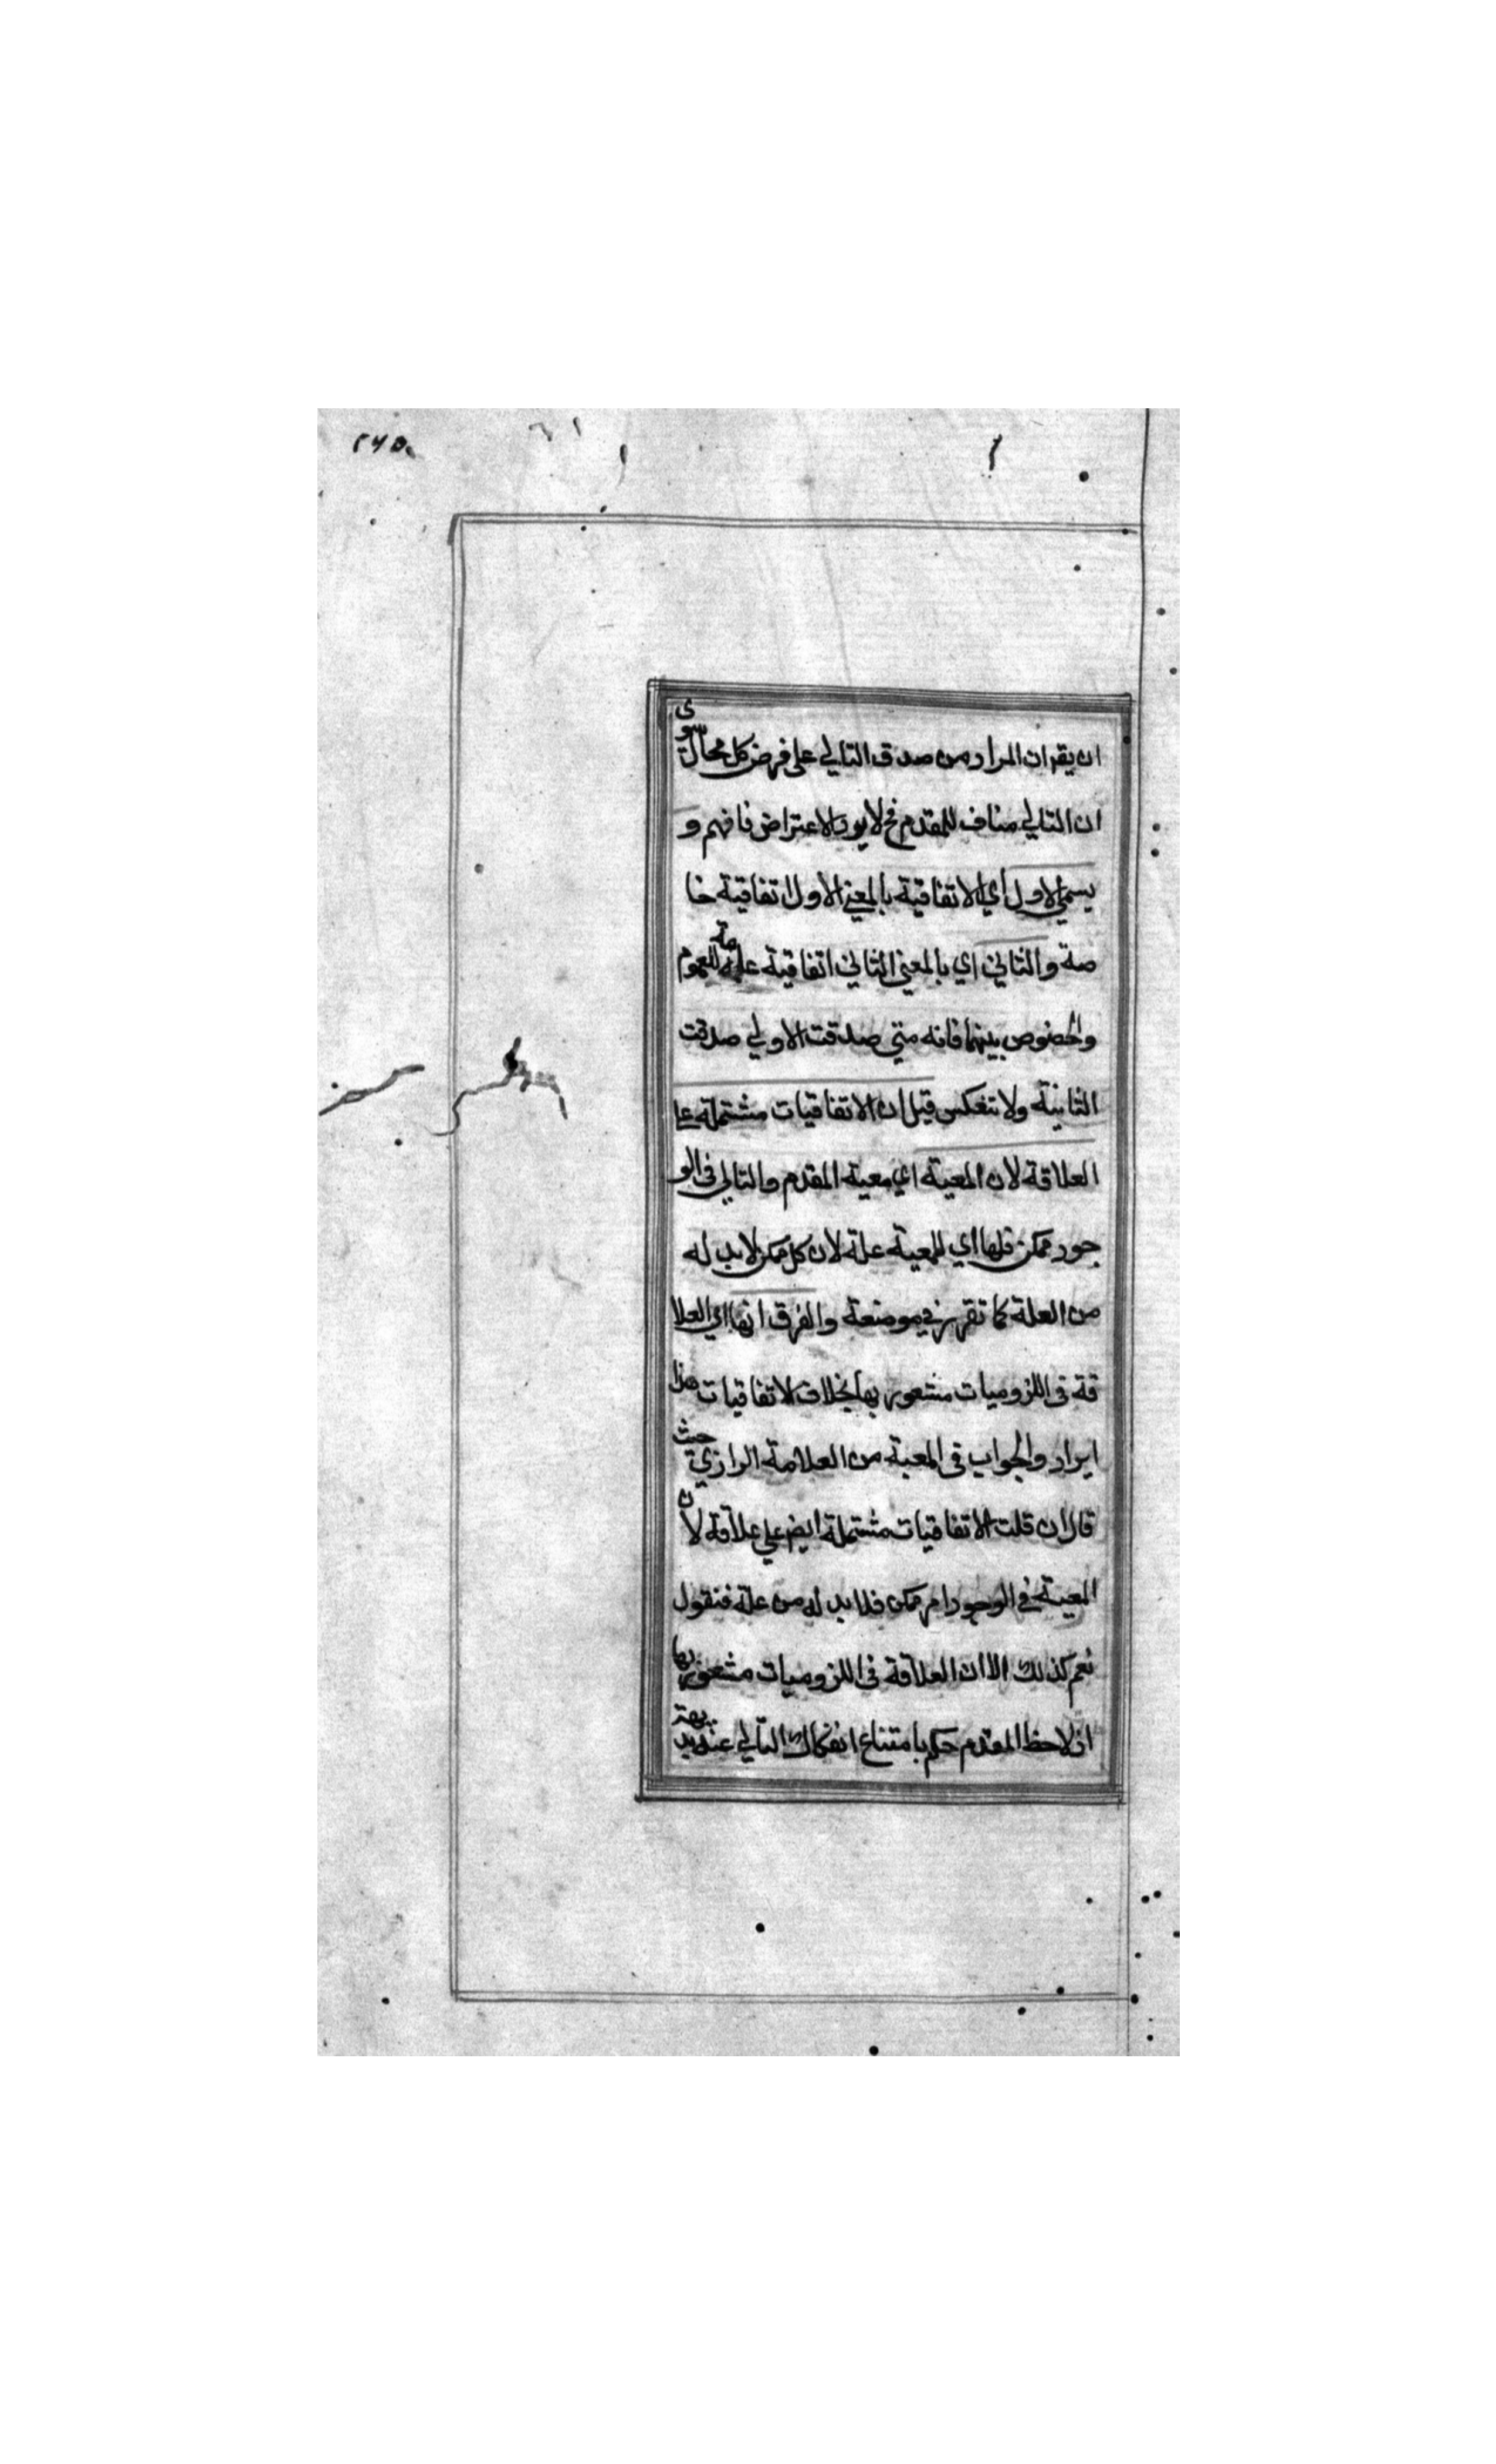 ۲۶۵
ان يقران المراد من صدق التالي على فرض كل محال سوى
ان التالي مناف للمقدم فح لا يرد الاعتراض فافهم و
يسمي الاول اي الاتفاقية بالمعني الاول اتفاقية خا
صة والثاني اي بالمعني الثاني اتفاقية عامة للعموم
والخصوص بينهما فانه متي صدقت الاولي صدقت
الثانية ولا تنعكس قيل ان الاتفاقيات مشتملة على
العلاقة لان المعية اي معية المقدم والتالي فى الو
جود ممكن فلها اي للمعية علة لان كل ممكن لا بد له
من العلة كما تقرر في موضعة والفرق انها اي العلا
قة فى اللزوميات مشعور بها بخلاف الاتفاقيات هذا
ايراد والجواب فى المعية من العلامة الرازي حيث
قال ان قلت الاتفاقيات مشتملة ايض علي علاقة لان
المعية في الوجود امر ممكن فلا بد له من علة فنقول
نعم كذلك الا ان العلاقة فى اللزوميات مشعور بها
اذ لاحظ المقدم حكم بامتناع انفكاك التالي عنه